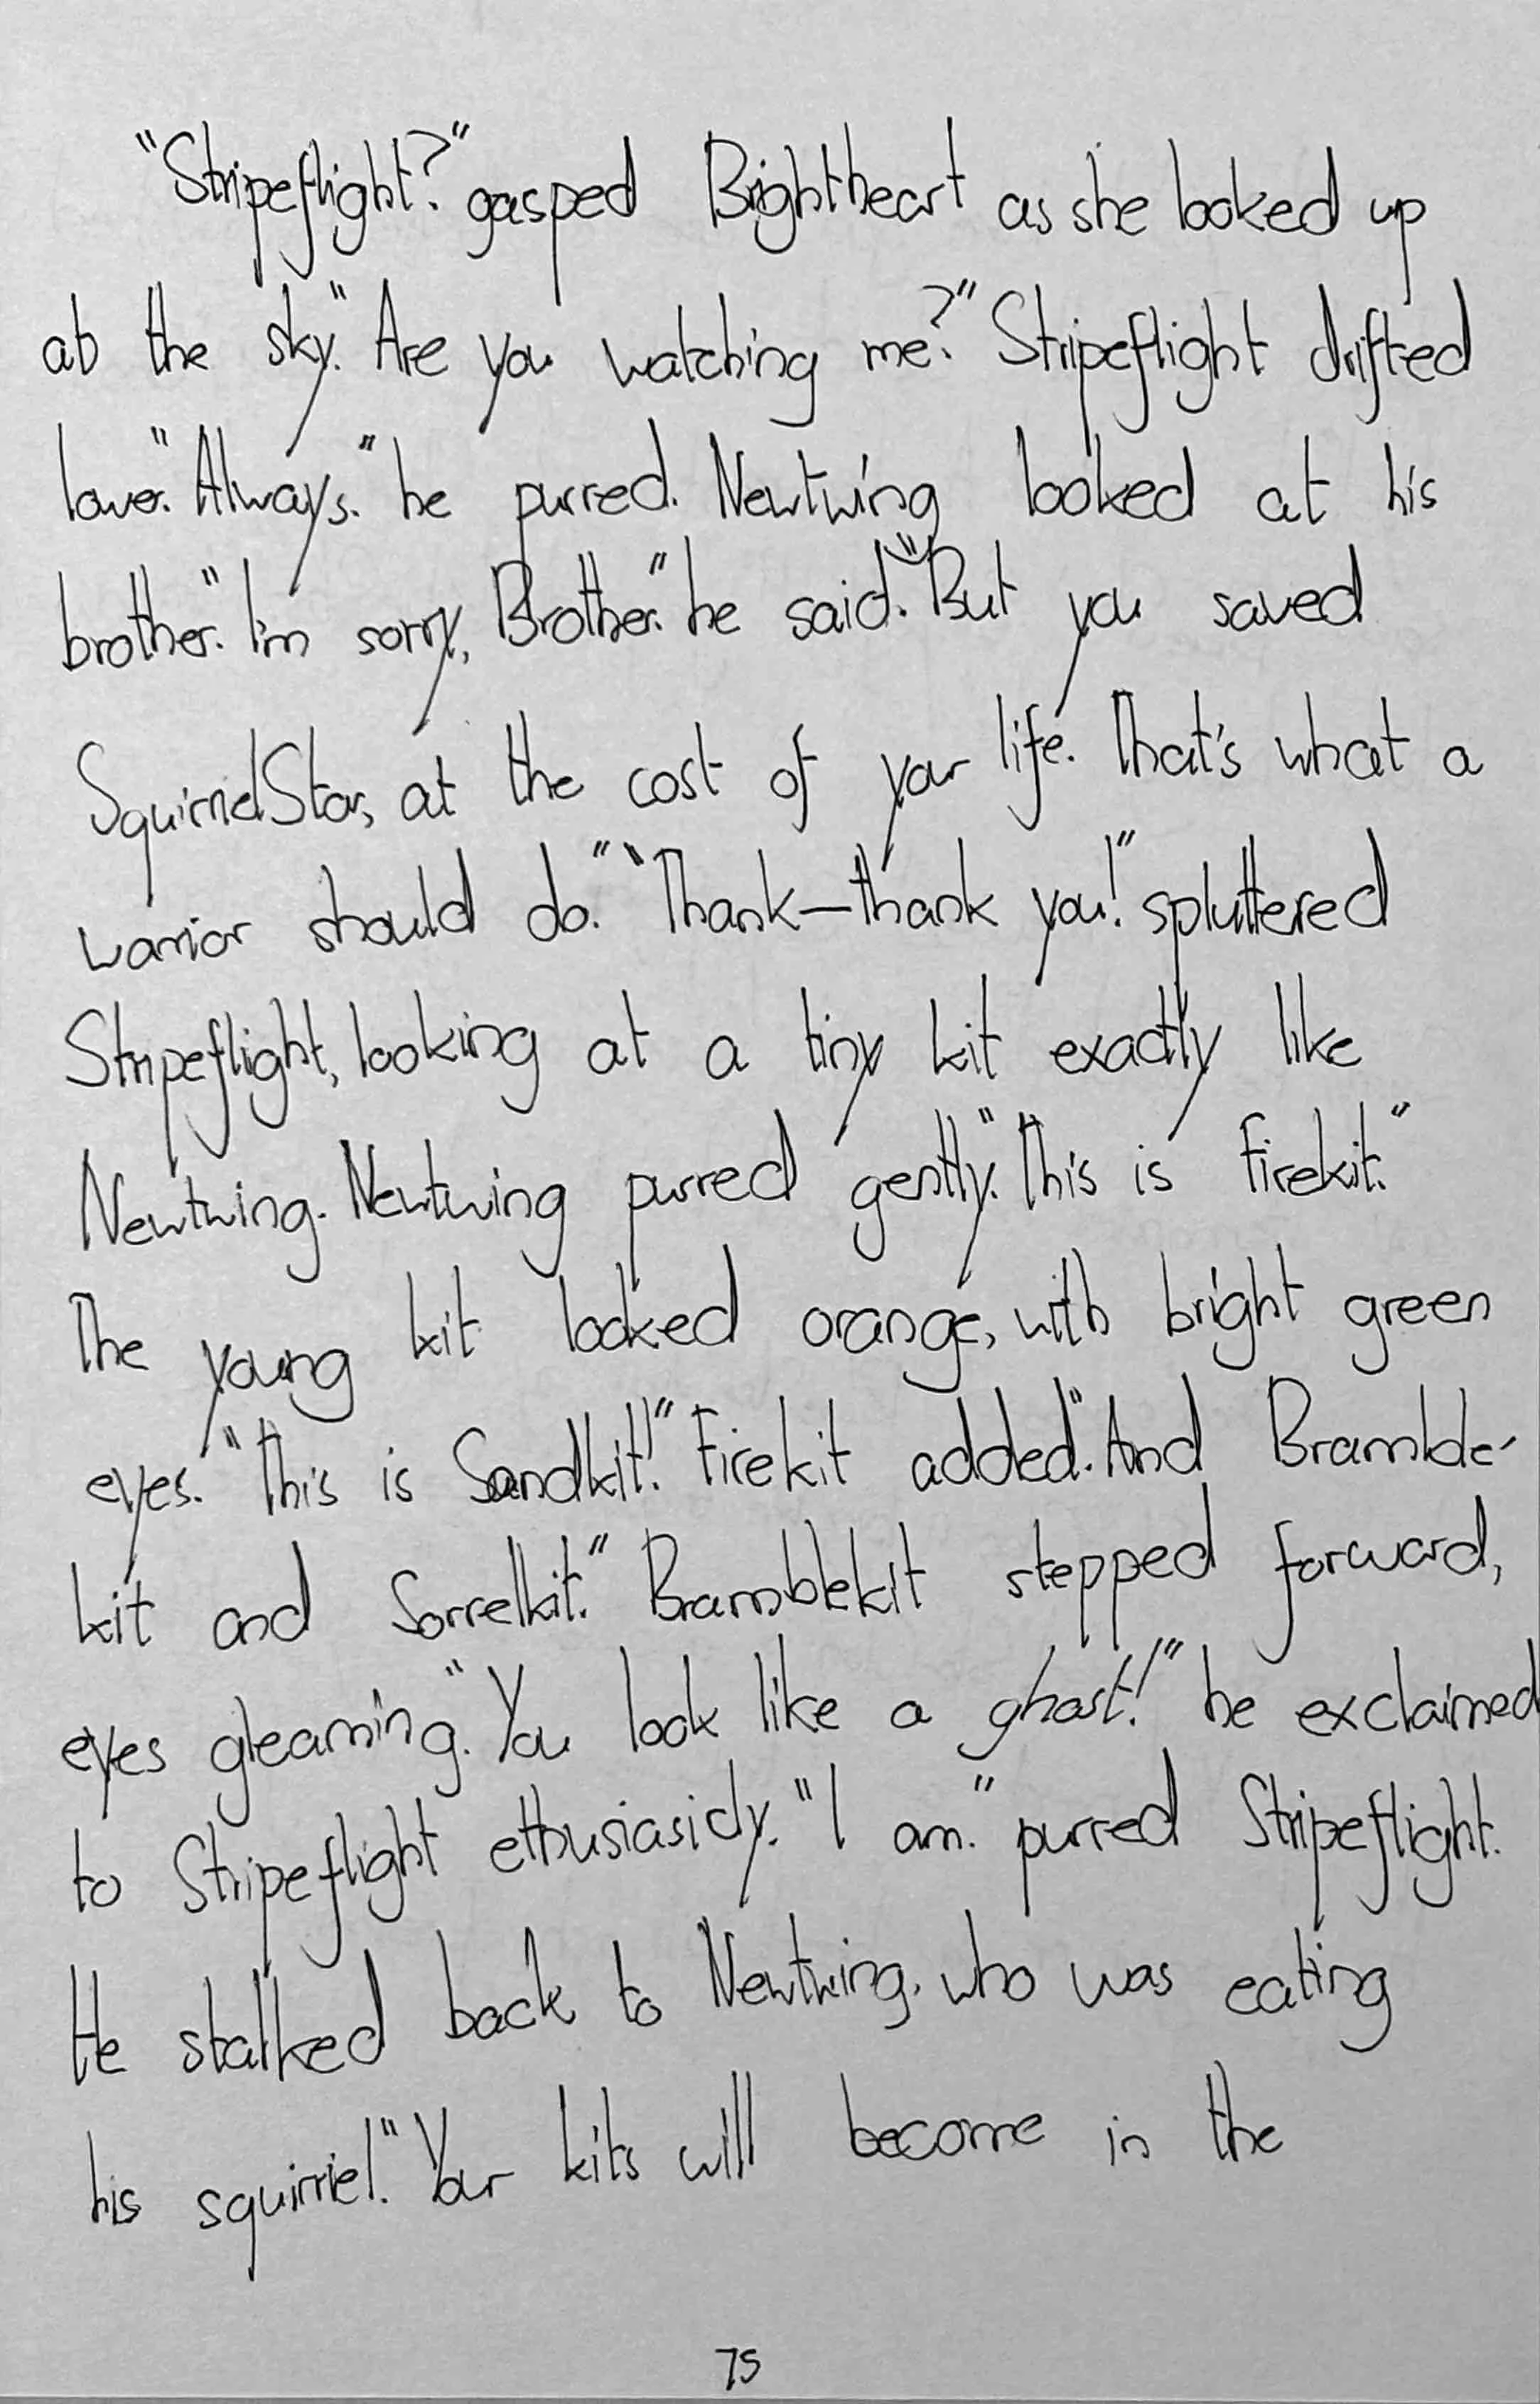 "Stripeflight?" gasped Brightheart as she looked up
at the sky. "Are you watching me?" Stripeflight drifted
lower. "Always." he purred. Newtwing looked at his
brother. "I'm sorry, Brother." he said. "But you saved
SquirrelStar, at the cost of your life. That's what a
warrior should do." "Thank—thank you!" spluttered
Stripeflight, looking at a tiny kit exactly like
Newtwing. Newtwing purred gently. "This is Firekit."
The young kit looked orange, with bright green
eyes. "This is Sandkit!" Firekit added. "And Bramble-
kit and Sorrelkit." Bramblekit stepped forward,
eyes gleaming. "You look like a ghost!" he exclaimed
to Stripeflight ethusiasicly. "I am." purred Stripeflight.
He stalked back to Newtwing, who was eating
his squirriel. "Your kits will become in the
75